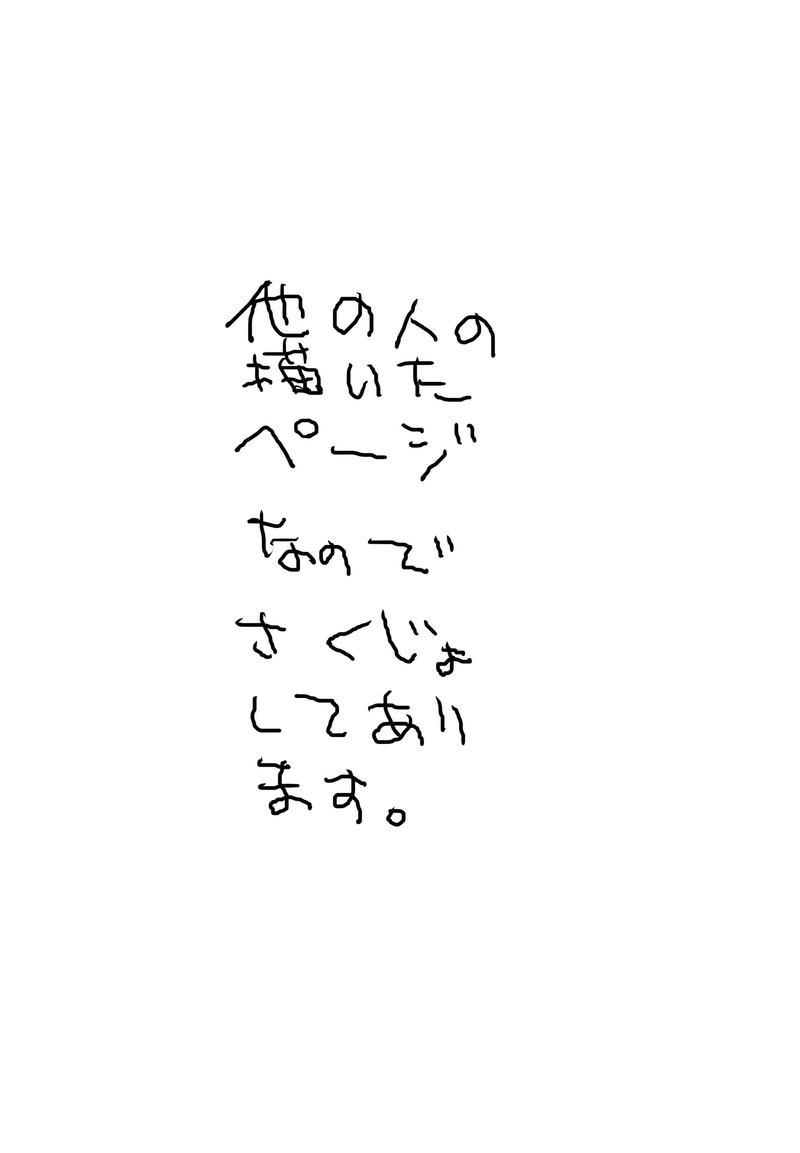 他の人の
描いた
ページ
なので
さくじょ
してあり
ます。